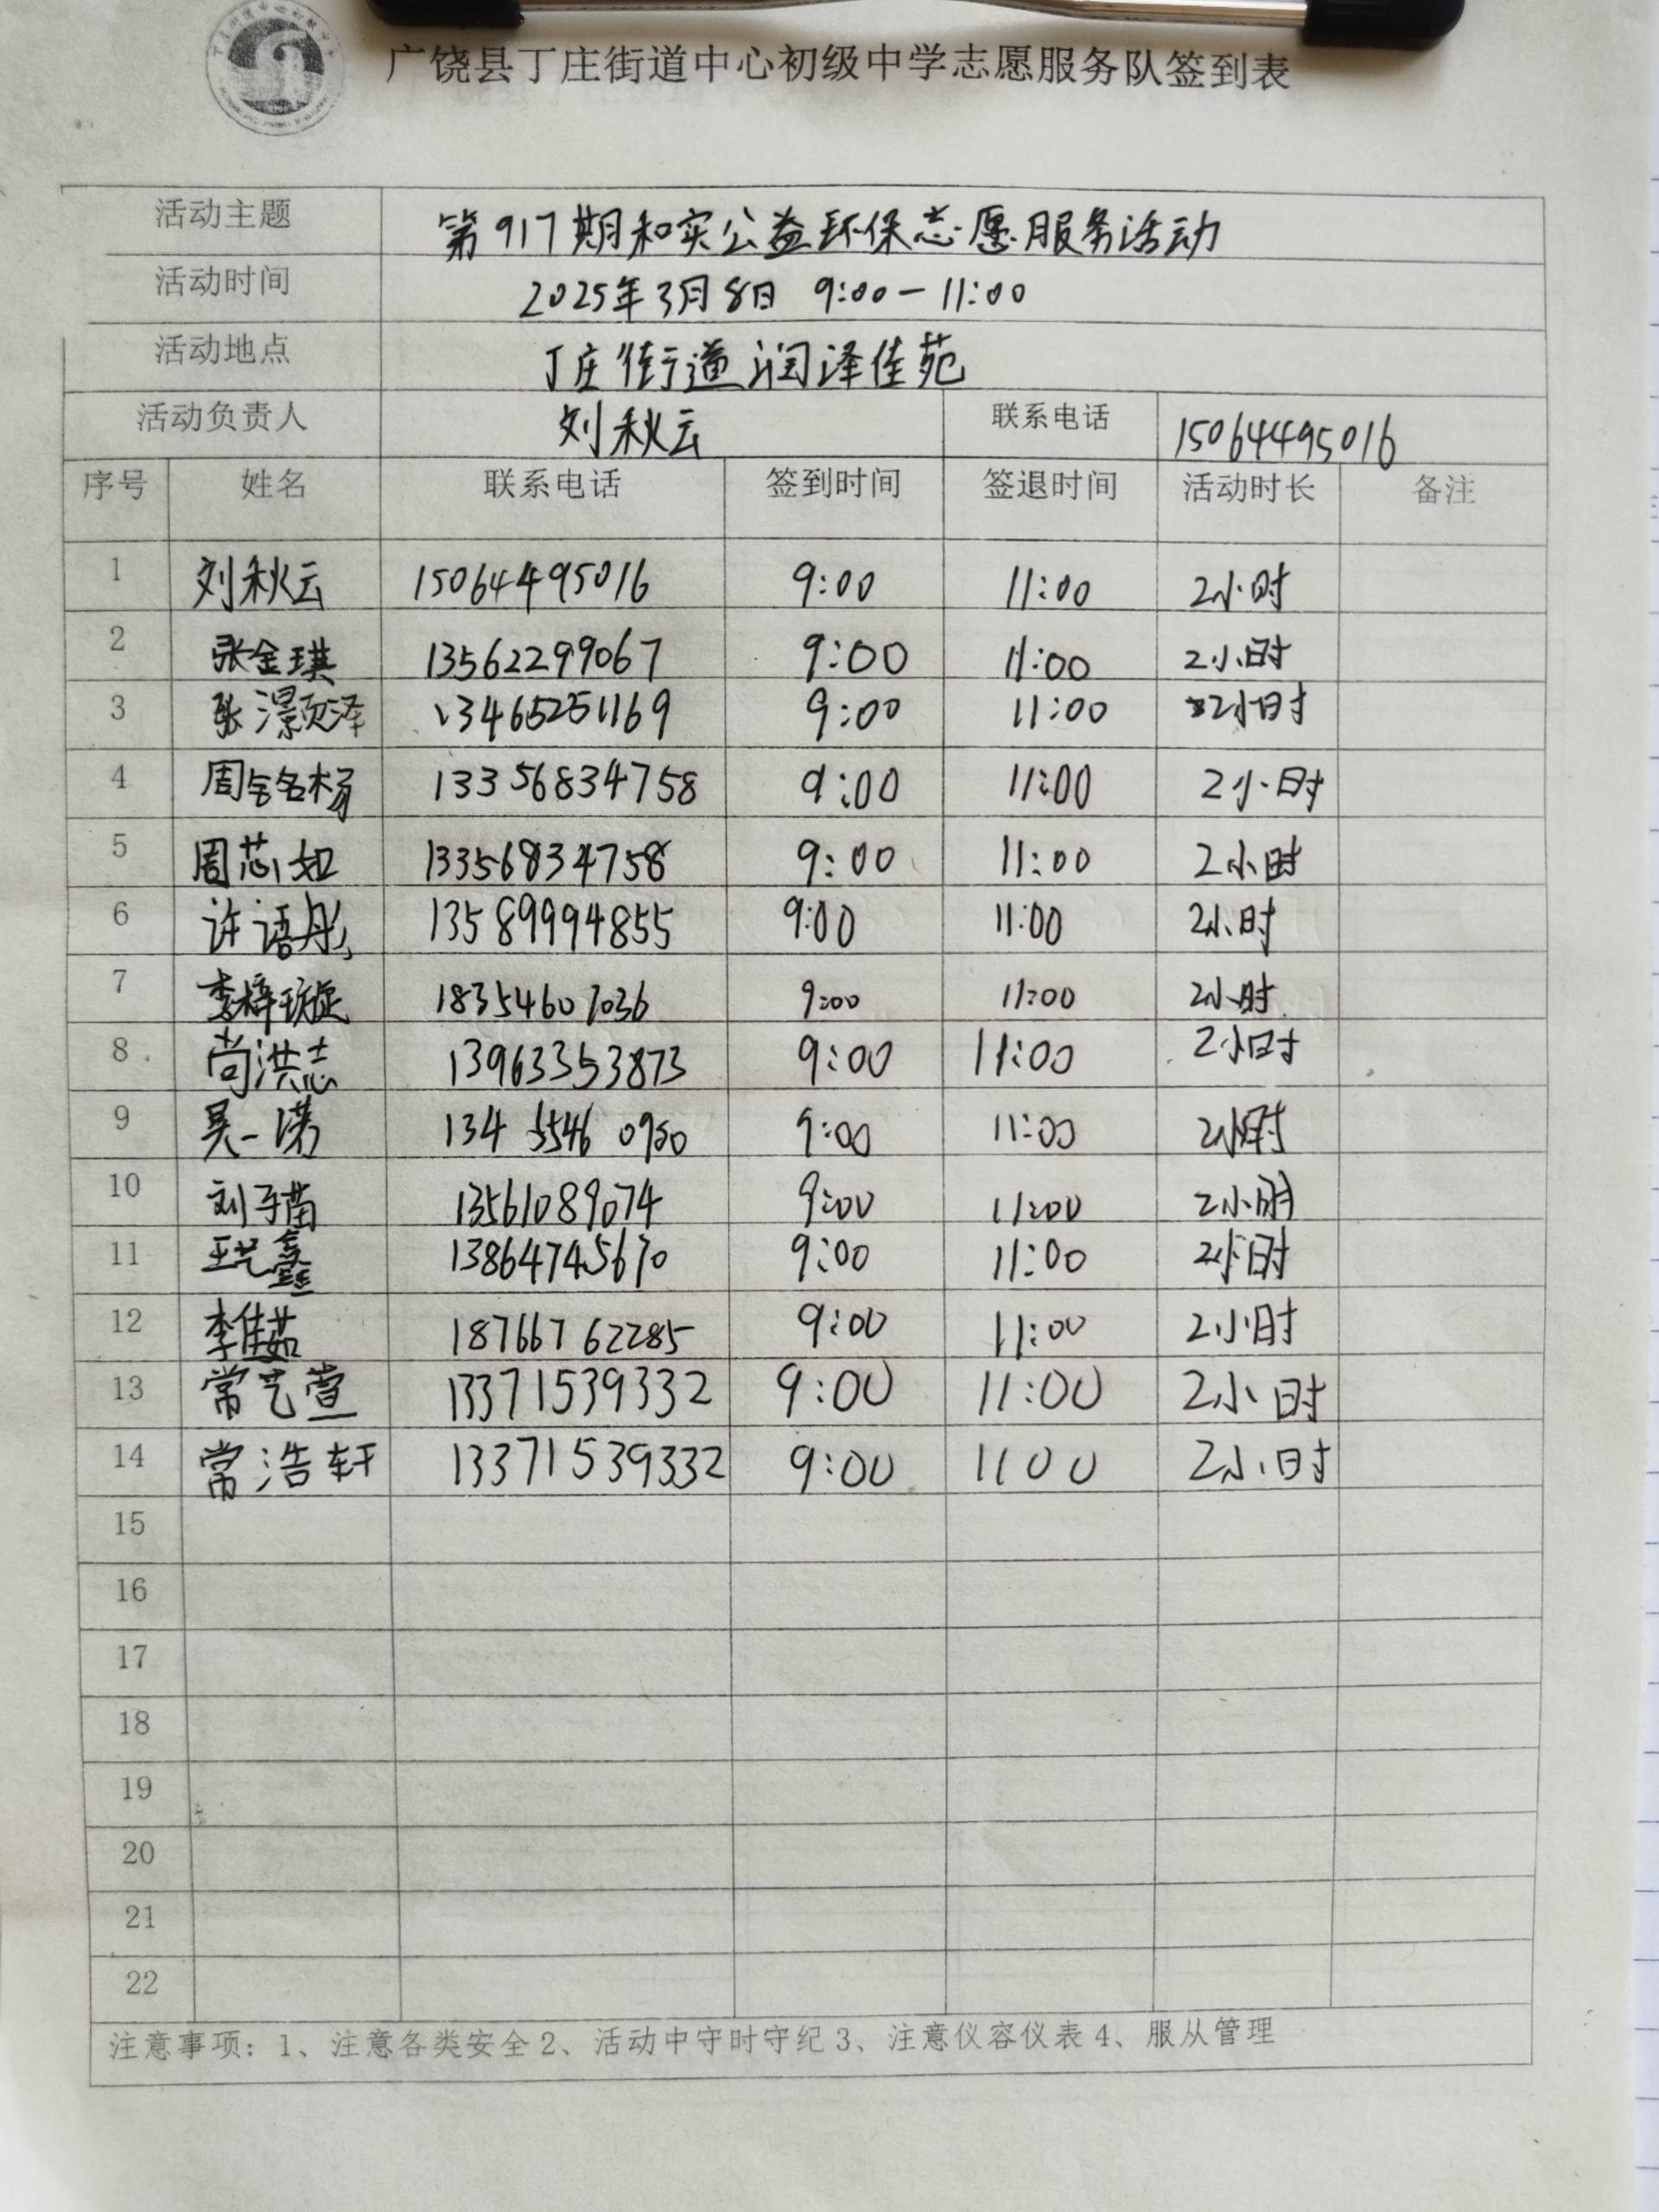 广饶县丁庄街道中心初级中学志愿服务队签到表
活动主题 第917期和实公益环保志愿服务活动
活动时间 2025年3月8日 9:00-11:00
活动地点 丁庄街道润泽佳苑
活动负责人 刘秋云 联系电话 15064495016
序号 姓名 联系电话 签到时间 签退时间 活动时长 备注
1 刘秋云 15064495016 9:00 11:00 2小时
2 张金琪 13562299067 9:00 11:00 2小时
3 张灏泽 13465251169 9:00 11:00 2小时
4 周名杨 13356834758 9:00 11:00 2小时
5 周芯如 13356834758 9:00 11:00 2小时
6 许语彤 13589994855 9:00 11:00 2小时
7 李梓璇 18354607036 9:00 11:00 2小时
8 尚洪志 13963353873 9:00 11:00 2小时
9 吴一诺 134 5546 0980 9:00 11:00 2小时
10 刘子苗 13561089074 9:00 11:00 2小时
11 王艺鑫 13864745670 9:00 11:00 2小时
12 李佳茹 18766762285 9:00 11:00 2小时
13 常艺萱 13371539332 9:00 11:00 2小时
14 常浩轩 13371539332 9:00 1100 2小时
15
16
17
18
19
20
21
22
注意事项：1、注意各类安全2、活动中守时守纪3、注意仪容仪表4、服从管理